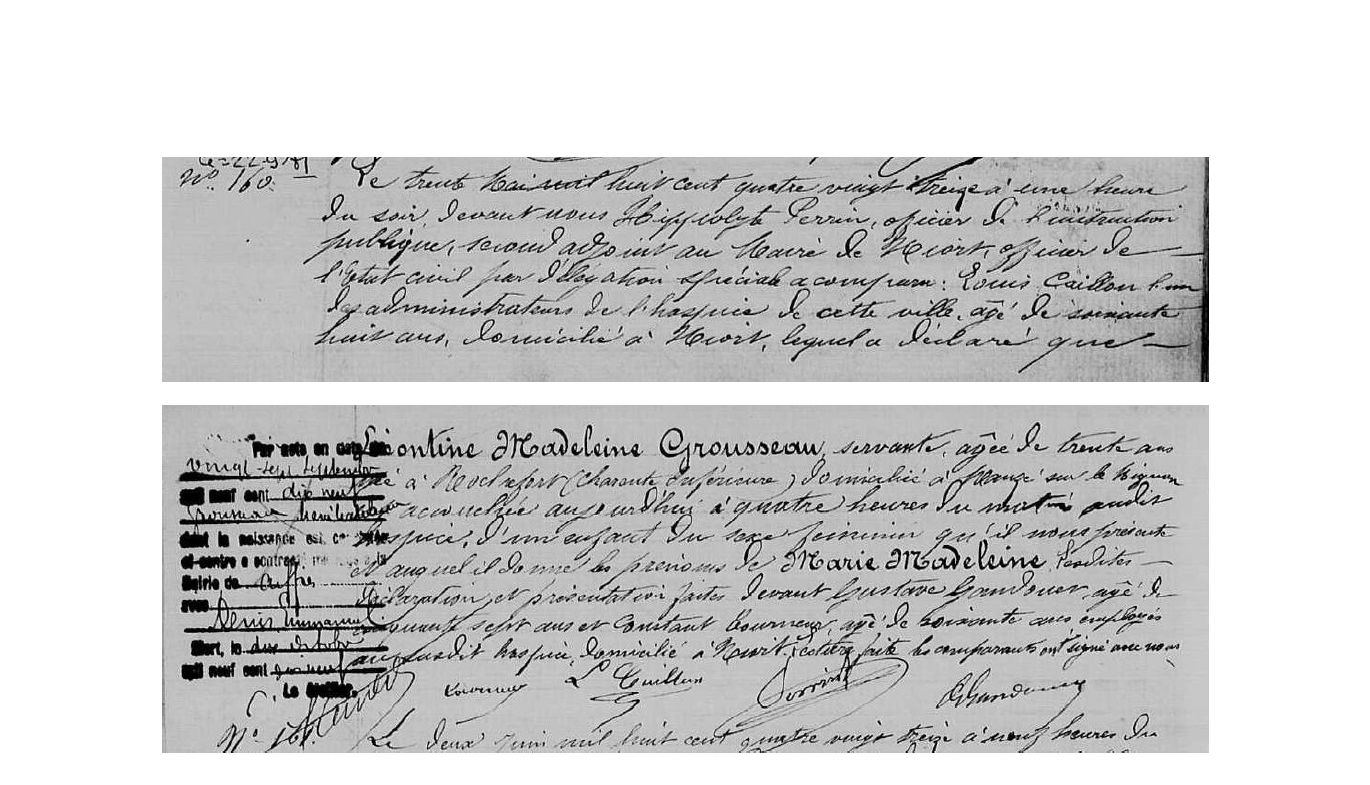 Le = 22.9.81
Nº 160.
Le trente Mai mil huit cent quatre vingt treize à une heure
du soir, devant nous Hippolyte Perrin, officier de l'instruction
publique, second adjoint au Maire de Niort, officier de
l'Etat civil par délégation spéciale a comparu : Louis Caillon l'un
des administrateurs de l'hospice de cette ville, agé de soixante
huit ans, domicilié à Niort, lequel a déclaré que
Par acte en date du
vingt sept septembre
mil neuf cent dix neuf
dont la naissance est
ci-contre a contracté mariage à la
Mairie de
avec
Denis Emmanuel
Niort, le dix octobre
mil neuf cent dix neuf
Le Greffier.
Léontine Madeleine Grousseau, servante, agée de trente ans
née à Rochefort (Charente Inférieure) domiciliée à sur le Mignon
est accouchée aujourd'hui à quatre heures du matin audit
hospice, d'un enfant du sexe féminin qu'il nous présente
et auquel il donne les prénoms de Marie Madeleine lesdites
déclaration et présentation faites devant Gustave Gandouer, agé de
sept ans et Constant Tourneur, agé de soixante ans employés
audit hospice, domiciliés à Niort, lecture faite les comparants ont signé avec nous
L. Caillon
Perrin
Nº 161.
Le deux Juin mil huit cent quatre vingt treize à neuf heures du